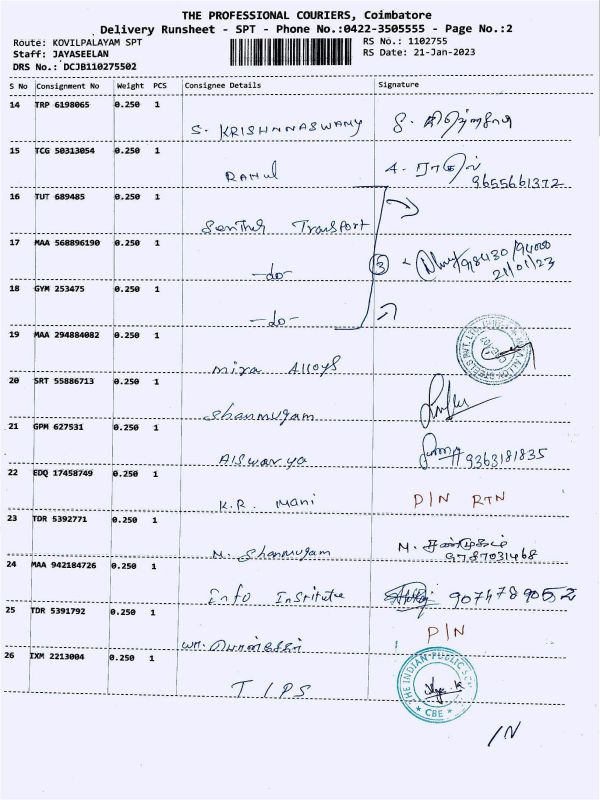 THE PROFESSIONAL COURIERS, Coimbatore
Delivery Runsheet - SPT - Phone No.:0422-3505555 - Page No.:2
Route: KOVILPALAYAM SPT
RS No.: 1102755
Staff: JAYASEELAN
RS Date: 21-Jan-2023
DRS No.: DCJB110275502
S No Consignment No Weight PCS Consignee Details Signature
14 TRP 6198065 0.250 1
S. KRISHNNASWAMY
15 TCG 50313054 0.250 1
RAHUL
9655661372
16 TUT 689485 0.250 1
Senthur Transport
17 MAA 568896190 0.250 1
-do-
3
21/01/23
18 GYM 253475 0.250 1
-do-
19 MAA 294884082 0.250 1
mixa Alloys
20 SRT 55886713 0.250 1
Shanmugam
21 GPM 627531 0.250 1
AISwarya
9363181835
22 EDQ 17458749 0.250 1
K.R. Mani D/N RTN
23 TDR 5392771 0.250 1
M. Shanmugam M. சண்முகம்
9787031468
24 MAA 942184726 0.250 1
Info Institute 9074789052
25 TDR 5391792 0.250 1
D/N
26 IXM 2213004 0.250 1
TIPS
THE INDIAN PUBLIC
CBE
/N